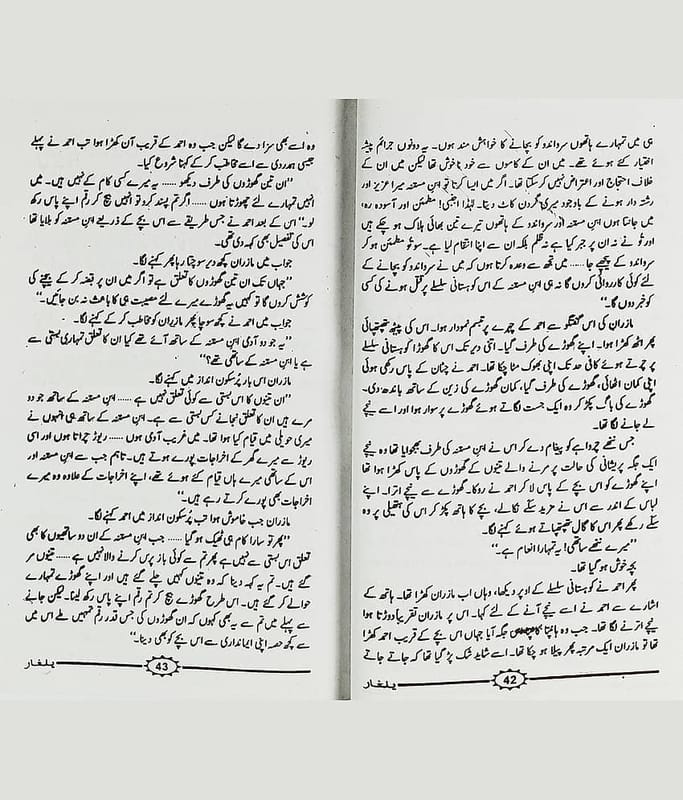 ہی میں تمہارے ہاتھوں سرواندہ کو بچانے کا خواہش مند ہوں۔ یہ دونوں جرائم پیشہ
اختیار کئے ہوئے تھے۔ میں ان کے کاموں سے خود ناخوش تھا لیکن میں ان کے
خلاف احتجاج اور اعتراض نہیں کر سکتا تھا۔ اگر میں ایسا کرتا تو ابن مستعنہ میرا عزیز اور
رشتہ دار ہونے کے باوجود میری گردن کاٹ دیتا۔ لہٰذا اجنبی! مطمئن اور آسودہ رہ،
میں جانتا ہوں ابن مستعنہ اور سرواندہ کے ہاتھوں تیرے تین بھائی ہلاک ہو چکے ہیں
اور تُو نے نہ ان پر جبر کیا ہے نہ ظلم بلکہ ان سے اپنا انتقام لیا ہے۔ سو تُو مطمئن ہو کر
سرواندہ کے پیچھے جا...... میں تجھ سے وعدہ کرتا ہوں کہ میں نے سرواندہ کو بچانے کے
لئے کوئی کارروائی کروں گا نہ ہی ابن مستعنہ کے اس کوہستانی سلسلے پر قتل ہونے کی کسی
کو خبر دوں گا۔‘‘
مازران کی اس گفتگو سے احمد کے چہرے پر تبسم نمودار ہوا۔ اس کی پیٹھ تھپتھپائی
پھر اٹھ کھڑا ہوا۔ اپنے گھوڑے کی طرف گیا۔ اتنی دیر تک اس کا گھوڑا کوہستانی سلسلے
پر چرتے ہوئے کافی حد تک اپنی بھوک مٹا چکا تھا۔ احمد نے چٹان کے پاس رکھی ہوئی
اپنی کمان اٹھائی، گھوڑے کی طرف گیا، کمان گھوڑے کی زین کے ساتھ باندھ دی۔
گھوڑے کی باگ پکڑ کر وہ ایک جست لگاتے ہوئے گھوڑے پر سوار ہوا اور اسے نیچے
لے جانے لگا تھا۔
جس ننھے چرواہے کو پیغام دے کر اس نے ابن مستعنہ کی طرف بھجوایا تھا وہ نیچے
ایک جگہ پریشانی کی حالت پر مرنے والے تینوں کے گھوڑوں کے پاس کھڑا ہوا تھا
اپنے گھوڑے کو اس بچے کے پاس لا کر احمد نے روکا۔ گھوڑے سے نیچے اترا۔ اپنے
لباس کے اندر سے اس نے مزید سکے نکالے، بچے کا ہاتھ پکڑ کر اس کی ہتھیلی پر وہ
سکے رکھے پھر اس کا گال تھپتھپاتے ہوئے کہنے لگا۔
’’میرے ننھے ساتھی! یہ تمہارا انعام ہے۔‘‘
بچہ خوش ہو گیا تھا۔
پھر احمد نے کوہستانی سلسلے کے اوپر دیکھا، وہاں اب مازران کھڑا تھا۔ ہاتھ کے
اشارے سے احمد نے اسے نیچے آنے کے لئے کہا۔ اس پر مازران تقریباً دوڑتا ہوا
نیچے اترنے لگا تھا۔ جب وہ ہانپتا کانپتا اس جگہ آیا جہاں اس بچے کے قریب احمد کھڑا
تھا تو مازران ایک مرتبہ پھر پیلا ہو چکا تھا۔ اسے شاید شک پڑ گیا تھا کہ جاتے جاتے
42
یلغار
وہ اسے بھی سزا دے گا لیکن جب وہ احمد کے قریب آن کھڑا ہوا تب احمد نے پہلے
جیسی ہمدردی سے اسے مخاطب کر کے کہنا شروع کیا۔
’’ان تین گھوڑوں کی طرف دیکھو...... یہ میرے کسی کام کے نہیں ہیں۔ میں
انہیں تمہارے لئے چھوڑتا ہوں...... اگر تم پسند کرو تو انہیں بیچ کر رقم اپنے پاس رکھ
لو۔‘‘ اس کے بعد احمد نے جس طریقے سے اس بچے کے ذریعے ابن مستعنہ کو بلایا تھا
اس کی تفصیل بھی کہہ دی تھی۔
جواب میں مازران کچھ دیر سوچتا رہا پھر کہنے لگا۔
’’جہاں تک ان تین گھوڑوں کا تعلق ہے تو اگر میں ان پر قبضہ کر کے بیچنے کی
کوشش کروں گا تو کہیں یہ گھوڑے میرے لئے مصیبت ہی کا باعث نہ بن جائیں۔‘‘
جواب میں احمد نے کچھ سوچا پھر مازران کو مخاطب کر کے کہنے لگا۔
’’یہ جو دو آدمی ابن مستعنہ کے ساتھ آئے تھے کیا ان کا تعلق تمہاری بستی سے
ہے یا ابن مستعنہ کے ساتھی تھے؟‘‘
مازران اس بار پُرسکون انداز میں کہنے لگا۔
’’ان تینوں کا اس بستی سے کوئی تعلق نہیں ہے...... ابن مستعنہ کے ساتھ جو دو
مرے ہیں ان کا تعلق نجانے کس بستی سے ہے۔ ابن مستعنہ کے ساتھ ہی انہوں نے
میری حویلی میں قیام کیا ہوا تھا۔ میں غریب آدمی ہوں...... ریوڑ چراتا ہوں اور اسی
ریوڑ سے میرے گھر کے اخراجات پورے ہوتے ہیں۔ تاہم جب سے ابن مستعنہ اور
اس کے ساتھی میرے ہاں قیام کئے ہوئے تھے، اپنے اخراجات کے علاوہ وہ میرے
اخراجات بھی پورے کرتے رہے ہیں۔‘‘
مازران جب خاموش ہوا تب پُرسکون انداز میں احمد کہنے لگا۔
’’پھر تو سارا کام ہی ٹھیک ہو گیا...... جب ابن مستعنہ کے ان دو ساتھیوں کا بھی
تعلق اس بستی سے نہیں ہے پھر تم سے کوئی باز پرس کرنے والا نہیں ہے...... تینوں مر
گئے ہیں۔ تم یہ کہہ دینا کہ وہ تینوں کہیں چلے گئے ہیں اور اپنے گھوڑے تمہارے
حوالے کر گئے ہیں۔ اس طرح گھوڑے بیچ کر تم رقم اپنے پاس رکھ لینا۔ لیکن جانے
سے پہلے میں تم سے یہ بھی کہوں کہ ان گھوڑوں کی جس قدر رقم تمہیں ملے اس میں
سے کچھ حصہ اپنی ایمانداری سے اس بچے کو بھی دینا۔‘‘
43
یلغار